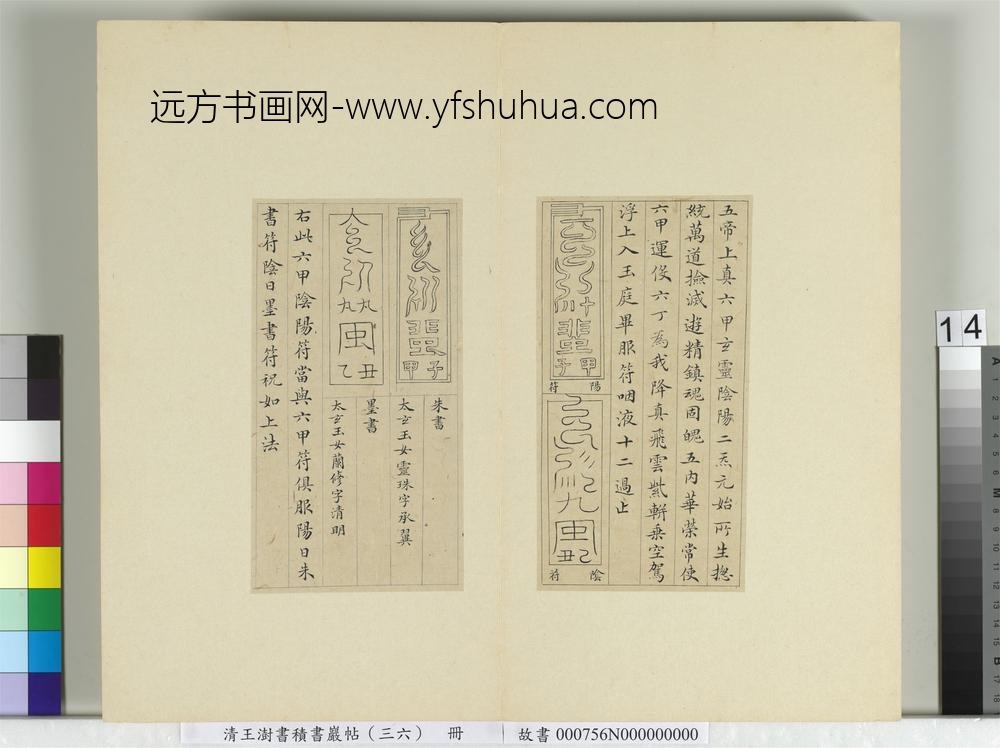 远方书画网-www.yfshuhua.com
五帝上真六甲玄靈陰陽二炁元始所生摠
統萬道撿滅遊精鎮魂固魄五內華榮常使
六甲運役六丁為我降真飛雲紫軿乗空駕
浮上入玉庭畢服符咽液十二過止
甲子
陽符
乙丑
陰符
甲子
朱書
太玄玉女靈珠字承翼
乙丑
墨書
太玄玉女蘭修字清明
右此六甲陰陽符當與六甲符俱服陽日朱
書符陰日墨書符祝如上法
14
清王澍書積書巖帖（三六） 冊
故書 000756N000000000